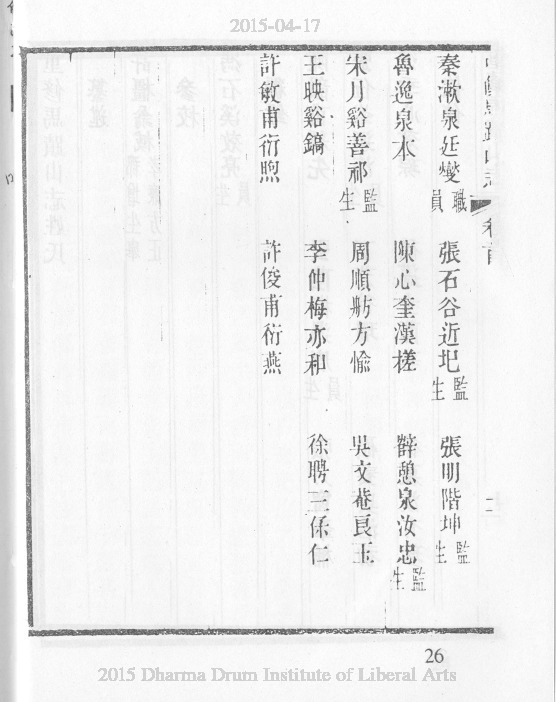 2015-04-17
秦漱泉延燮職員 張石谷近圯監生 張明階坤監生
魯逸泉本 陳心奎漢槎 薛憩泉汝忠監生
宋月谿善祁監生 周順舫方愉 吳文菴良玉
王映谿鎬 李仲梅亦和 徐聘三保仁
許敏甫衍煦 許俊甫衍燕
26
2015 Dharma Drum Institute of Liberal Arts